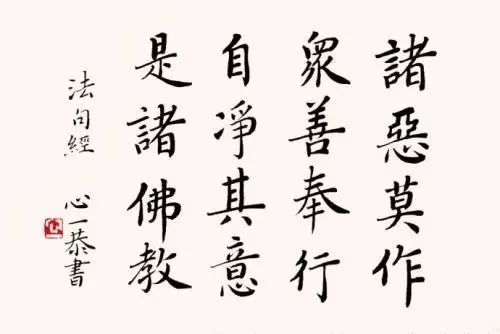 諸惡莫作
衆善奉行
自淨其意
是諸佛教
法句經 心一恭書